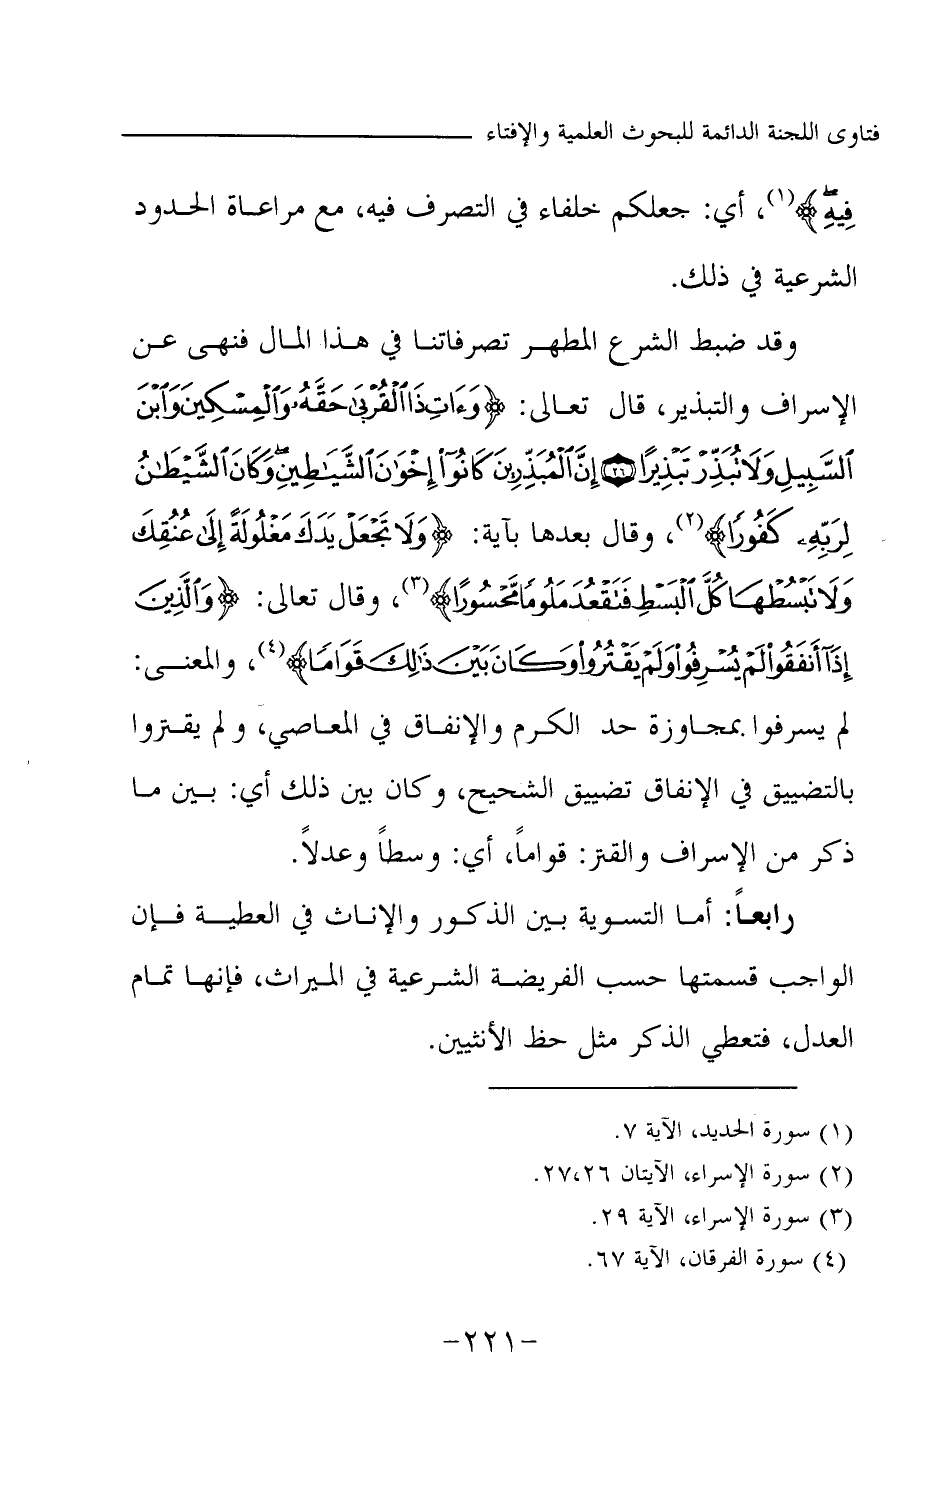 فتاوى اللجنة الدائمة للبحوث العلمية والإفتاء
فِيهِۖ﴾(١)، أي: جعلكم خلفاء في التصرف فيه، مع مراعاة الحدود
الشرعية في ذلك.
وقد ضبط الشرع المطهر تصرفاتنا في هذا المال فنهى عن
الإسراف والتبذير، قال تعالى: ﴿وَءَاتِ ذَا ٱلْقُرْبَىٰ حَقَّهُۥ وَٱلْمِسْكِينَ وَٱبْنَ
ٱلسَّبِيلِ وَلَا تُبَذِّرْ تَبْذِيرًا ٢٦ إِنَّ ٱلْمُبَذِّرِينَ كَانُوٓا۟ إِخْوَٰنَ ٱلشَّيَـٰطِينِۖ وَكَانَ ٱلشَّيْطَـٰنُ
لِرَبِّهِۦ كَفُورًا﴾(٢)، وقال بعدها بآية: ﴿وَلَا تَجْعَلْ يَدَكَ مَغْلُولَةً إِلَىٰ عُنُقِكَ
وَلَا تَبْسُطْهَا كُلَّ ٱلْبَسْطِ فَتَقْعُدَ مَلُومًا مَّحْسُورًا﴾(٣)، وقال تعالى: ﴿وَٱلَّذِينَ
إِذَآ أَنفَقُوا۟ لَمْ يُسْرِفُوا۟ وَلَمْ يَقْتُرُوا۟ وَكَانَ بَيْنَ ذَٰلِكَ قَوَامًا﴾(٤)، والمعنى:
لم يسرفوا بمجاوزة حد الكرم والإنفاق في المعاصي، ولم يقتروا
بالتضييق في الإنفاق تضييق الشحيح، وكان بين ذلك أي: بين ما
ذكر من الإسراف والقتر: قواماً، أي: وسطاً وعدلاً.
رابعاً: أما التسوية بين الذكور والإناث في العطية فإن
الواجب قسمتها حسب الفريضة الشرعية في الميراث، فإنها تمام
العدل، فتعطي الذكر مثل حظ الأنثيين.
(١) سورة الحديد، الآية ٧.
(٢) سورة الإسراء، الآيتان ٢٧،٢٦.
(٣) سورة الإسراء، الآية ٢٩.
(٤) سورة الفرقان، الآية ٦٧.
-٢٢١-